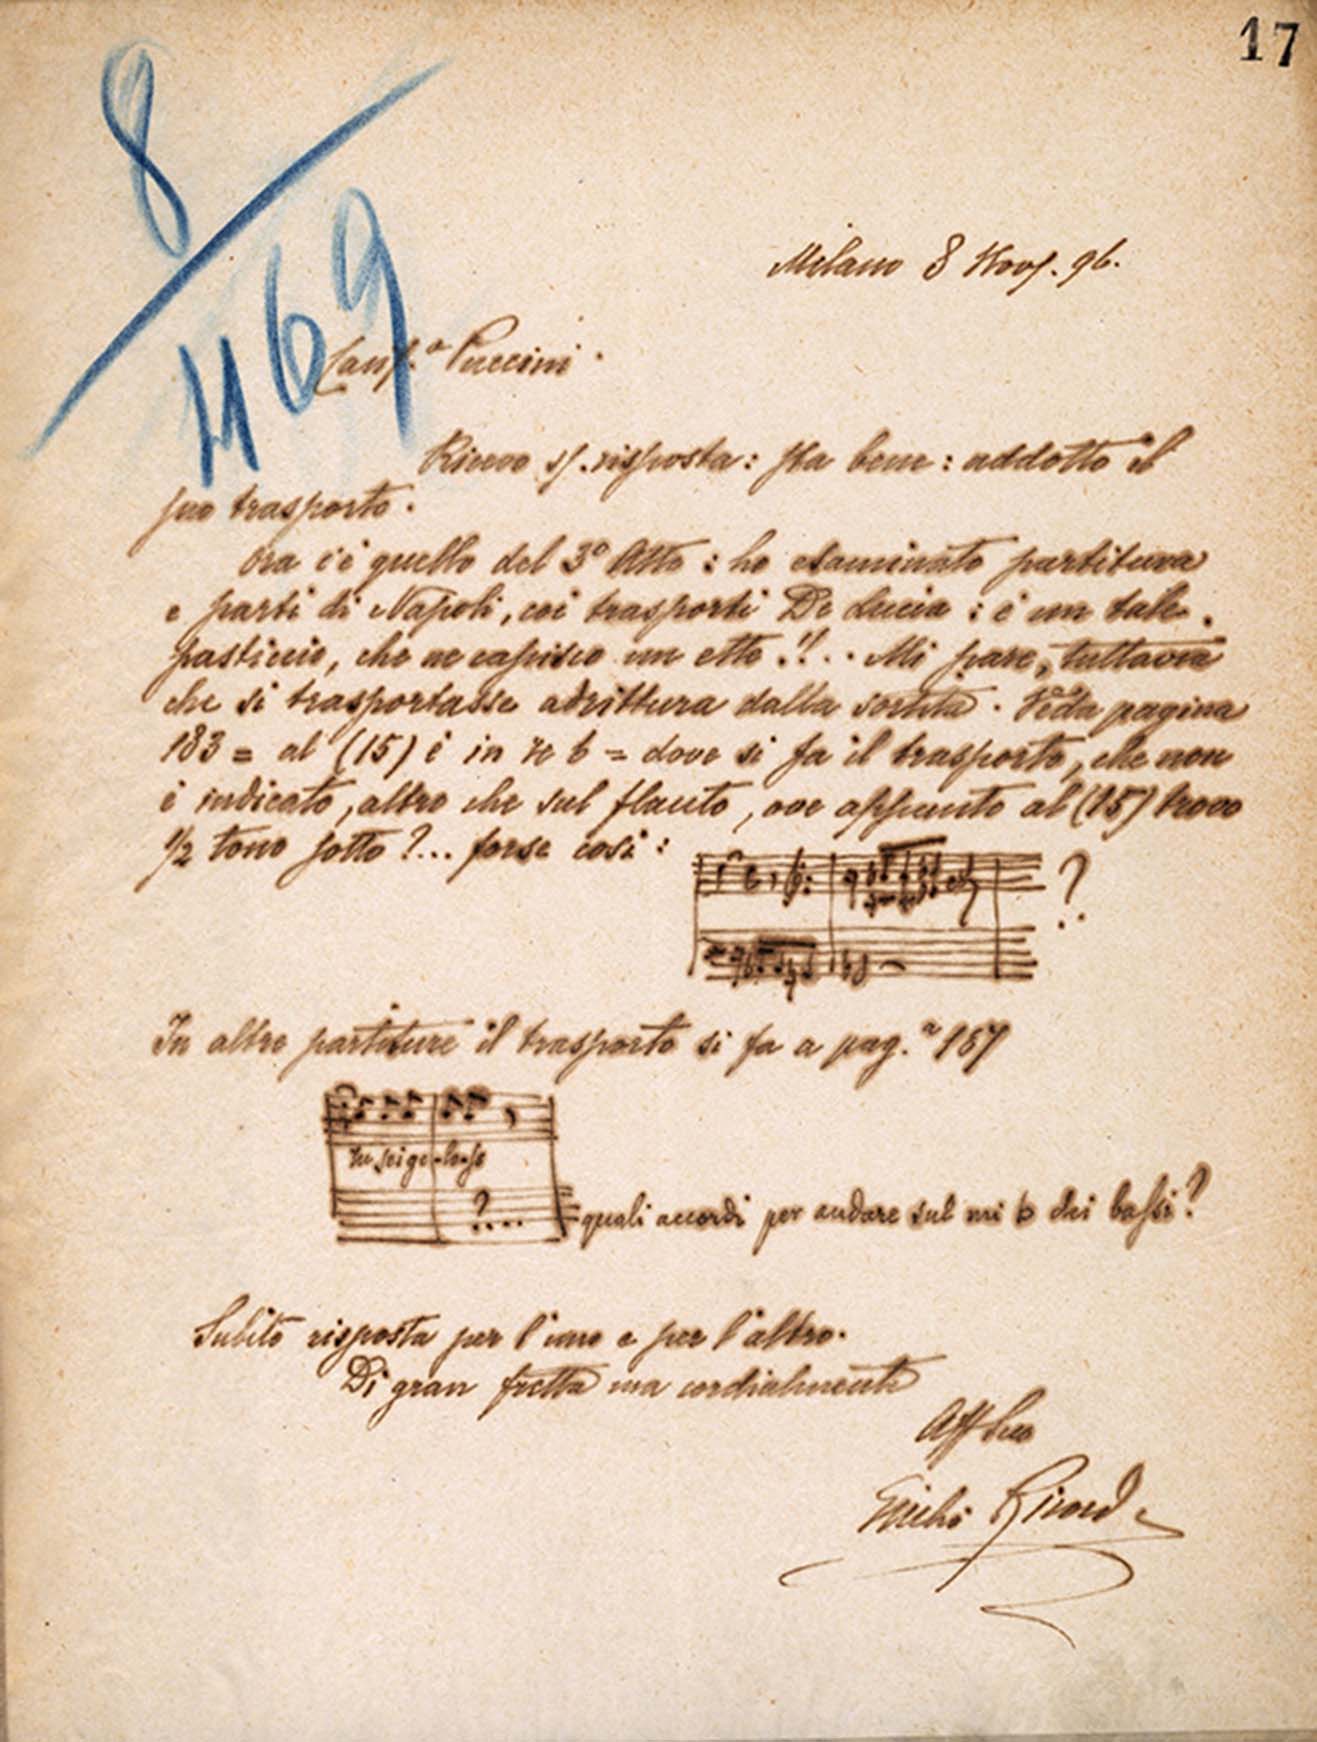 17
8
469
Milano 8 Nov. 96.
Puccini.
Ricevo risposta: sta bene: addotto il
suo trasporto.
Ora c'è quello del 3º Atto: ho esaminato partitura
e parti di Napoli, coi trasporti De Lucia: è un tale
pasticcio, che ne capisco un ette.!!.. Mi pare, tuttavia
che si trasportasse adrittura dalla sortita. Veda pagina
183 = al (15) è in re b = dove si fa il trasporto, che non
è indicato, altro che sul flauto, ove appunto al (15) trovo
1/2 tono sotto?... forse così:
?
In altre partiture il trasporto si fa a pag.ª 187
tu sei ge-lo-so
?...
quali accordi per andare sul mi b dei bassi?
Subito risposta per l'uno e per l'altro.
Di gran fretta ma cordialmente
Aff Suo
Giulio Ricordi